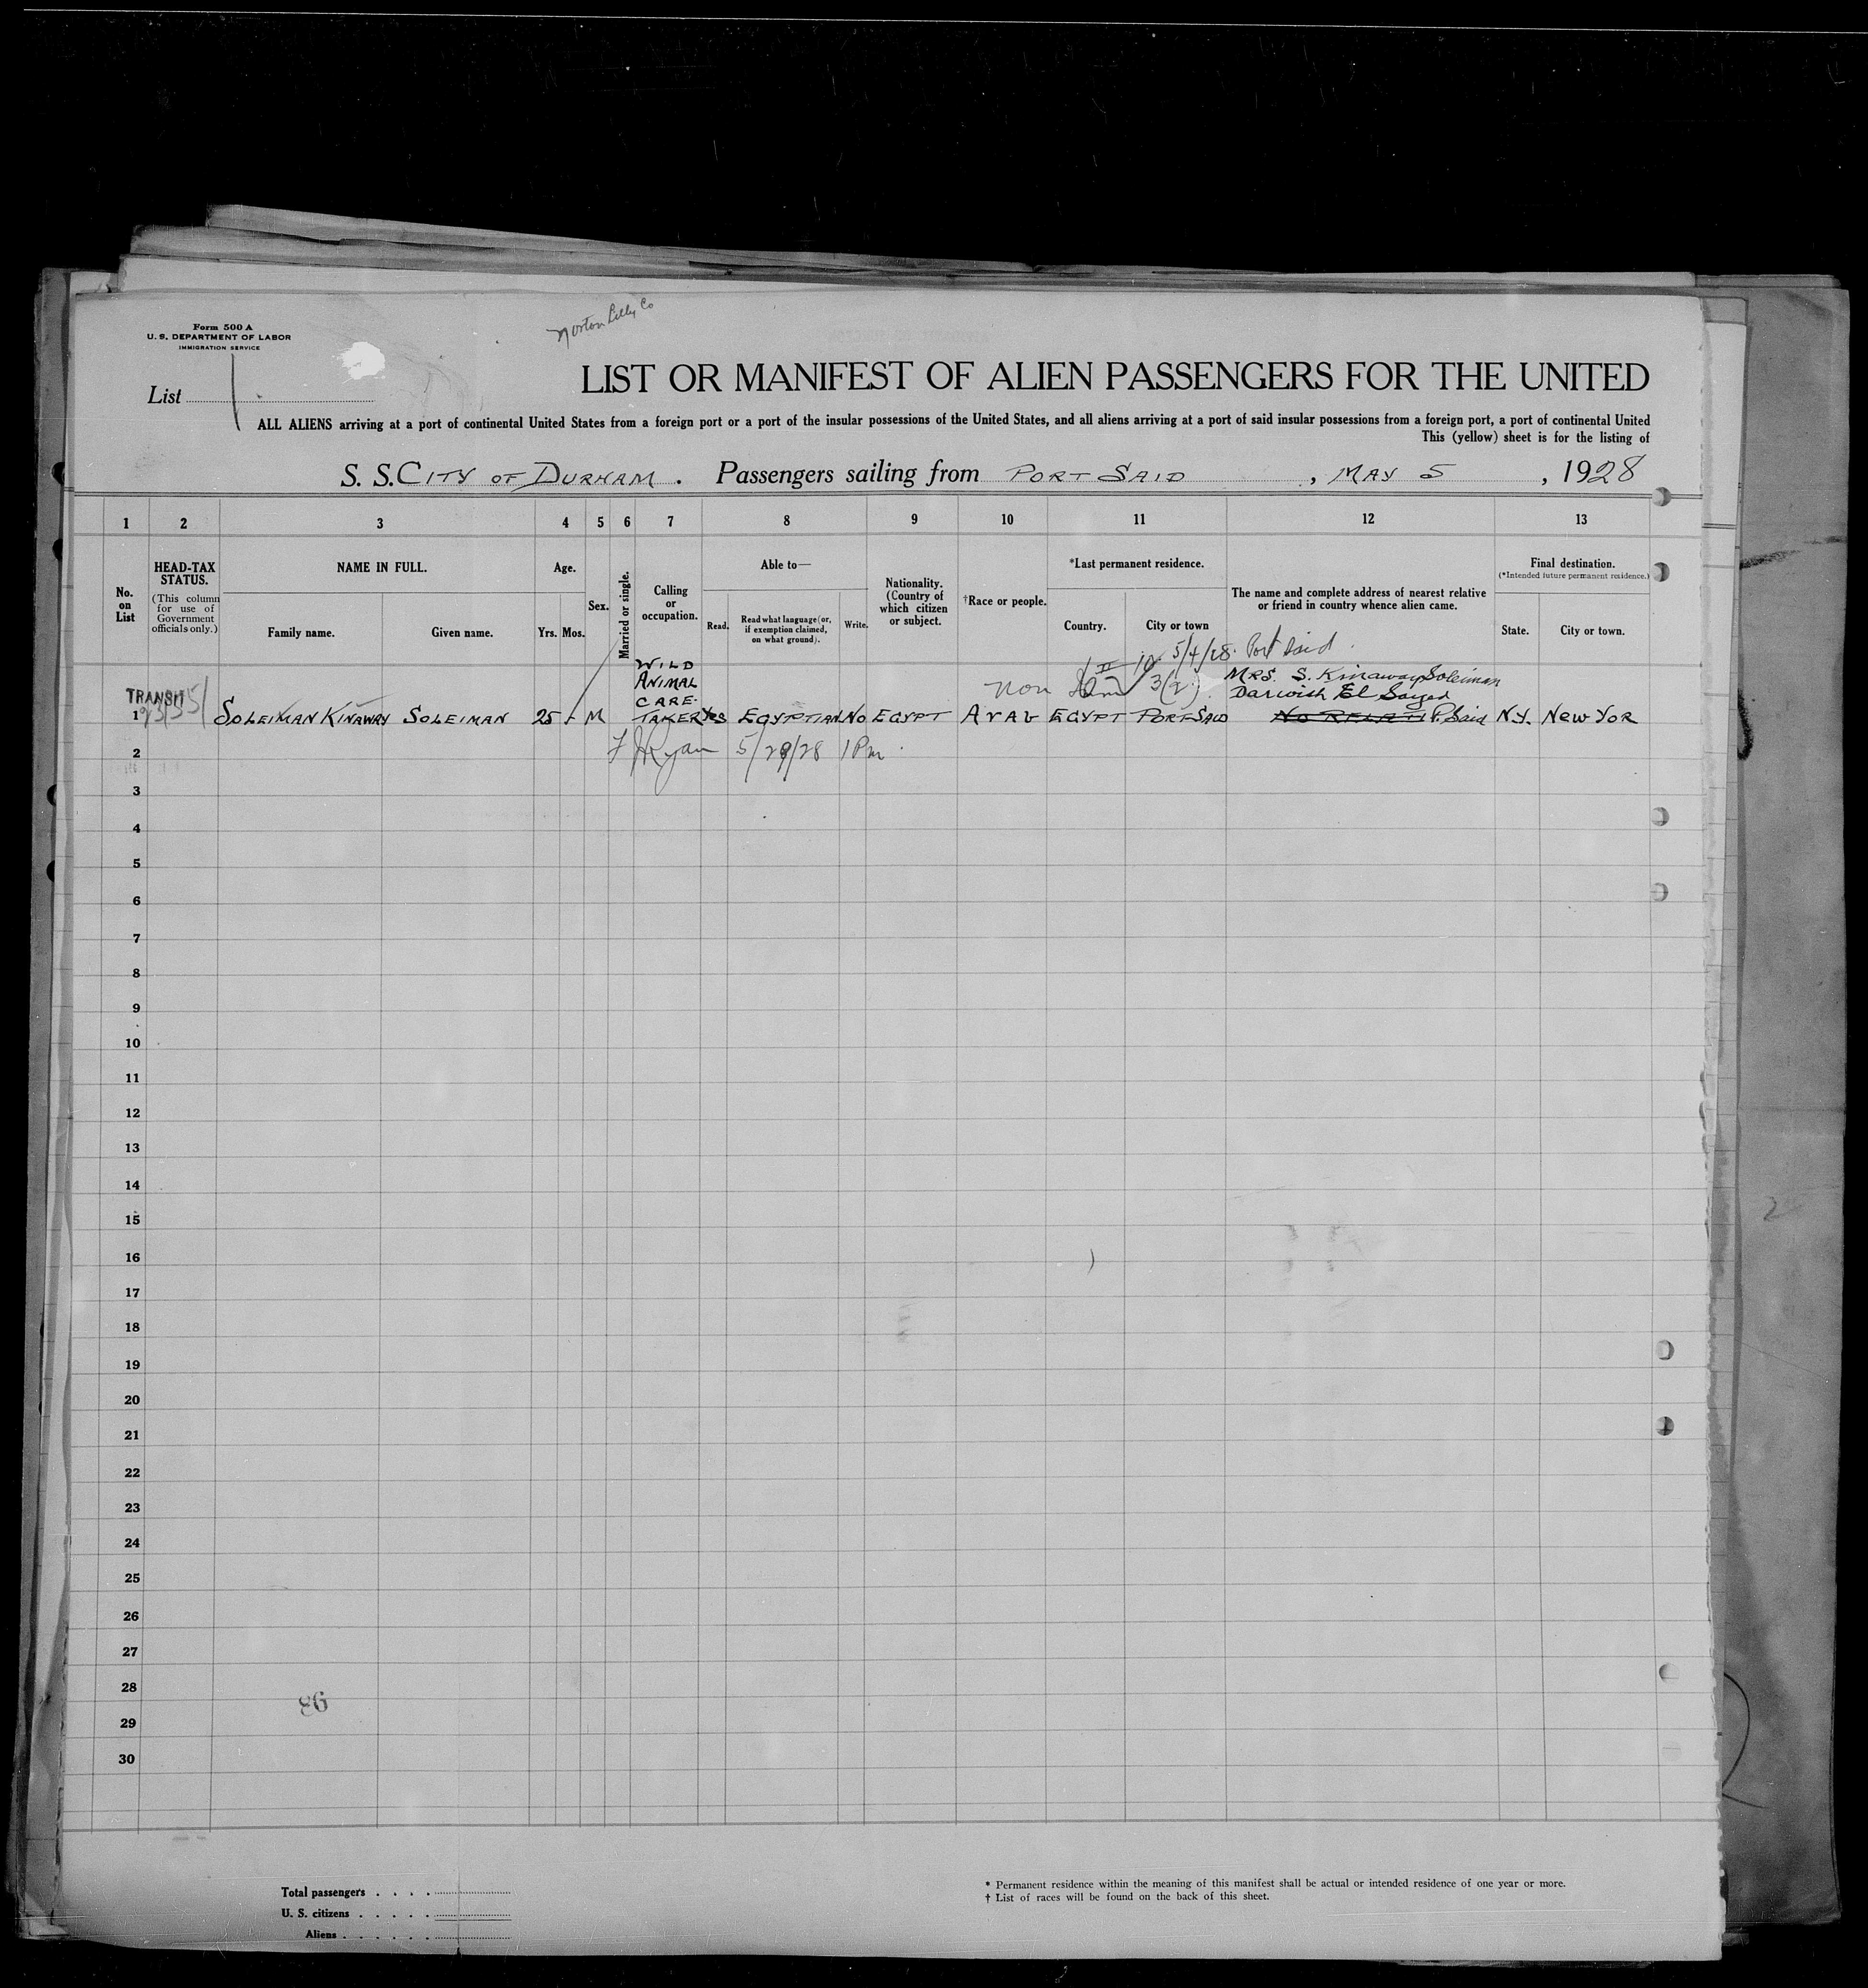 Norton Lilly Co
Form 500 A
U. S. DEPARTMENT OF LABOR
IMMIGRATION SERVICE
List 1
LIST OR MANIFEST OF ALIEN PASSENGERS FOR THE UNITED
ALL ALIENS arriving at a port of continental United States from a foreign port or a port of the insular possessions of the United States, and all aliens arriving at a port of said insular possessions from a foreign port, a port of continental United
This (yellow) sheet is for the listing of
S. S. CITY OF DURHAM. Passengers sailing from PORT SAID, MAY 5, 1928
1 2 3 4 5 6 7 8 9 10 11 12 13
No. on List
HEAD-TAX STATUS.
(This column for use of Government officials only.)
NAME IN FULL.
Family name. Given name.
Age.
Yrs. Mos.
Sex.
Married or single.
Calling or occupation.
Able to—
Read. Read what language (or, if exemption claimed, on what ground). Write.
Nationality. (Country of which citizen or subject.
†Race or people.
*Last permanent residence.
Country. City or town
The name and complete address of nearest relative or friend in country whence alien came.
Final destination.
(*Intended future permanent residence.)
State. City or town.
5/4/28. Port Said.
Non 3(2).
TRANSIT
1 SOLEIMAN KINAWAY SOLEIMAN 25 M WILD ANIMAL CARE-TAKER Yes EGYPTIAN No EGYPT ArAb EGYPT PORT SAID MRS. S. Kinaway Soleiman Darwish El Sayed P. Said N.Y. New Yor
2 F J Ryan 5/29/28 1 Pm.
3
4
5
6
7
8
9
10
11
12
13
14
15
16
17
18
19
20
21
22
23
24
25
26
27
28
29
30
Total passengers
U. S. citizens
Aliens
* Permanent residence within the meaning of this manifest shall be actual or intended residence of one year or more.
† List of races will be found on the back of this sheet.